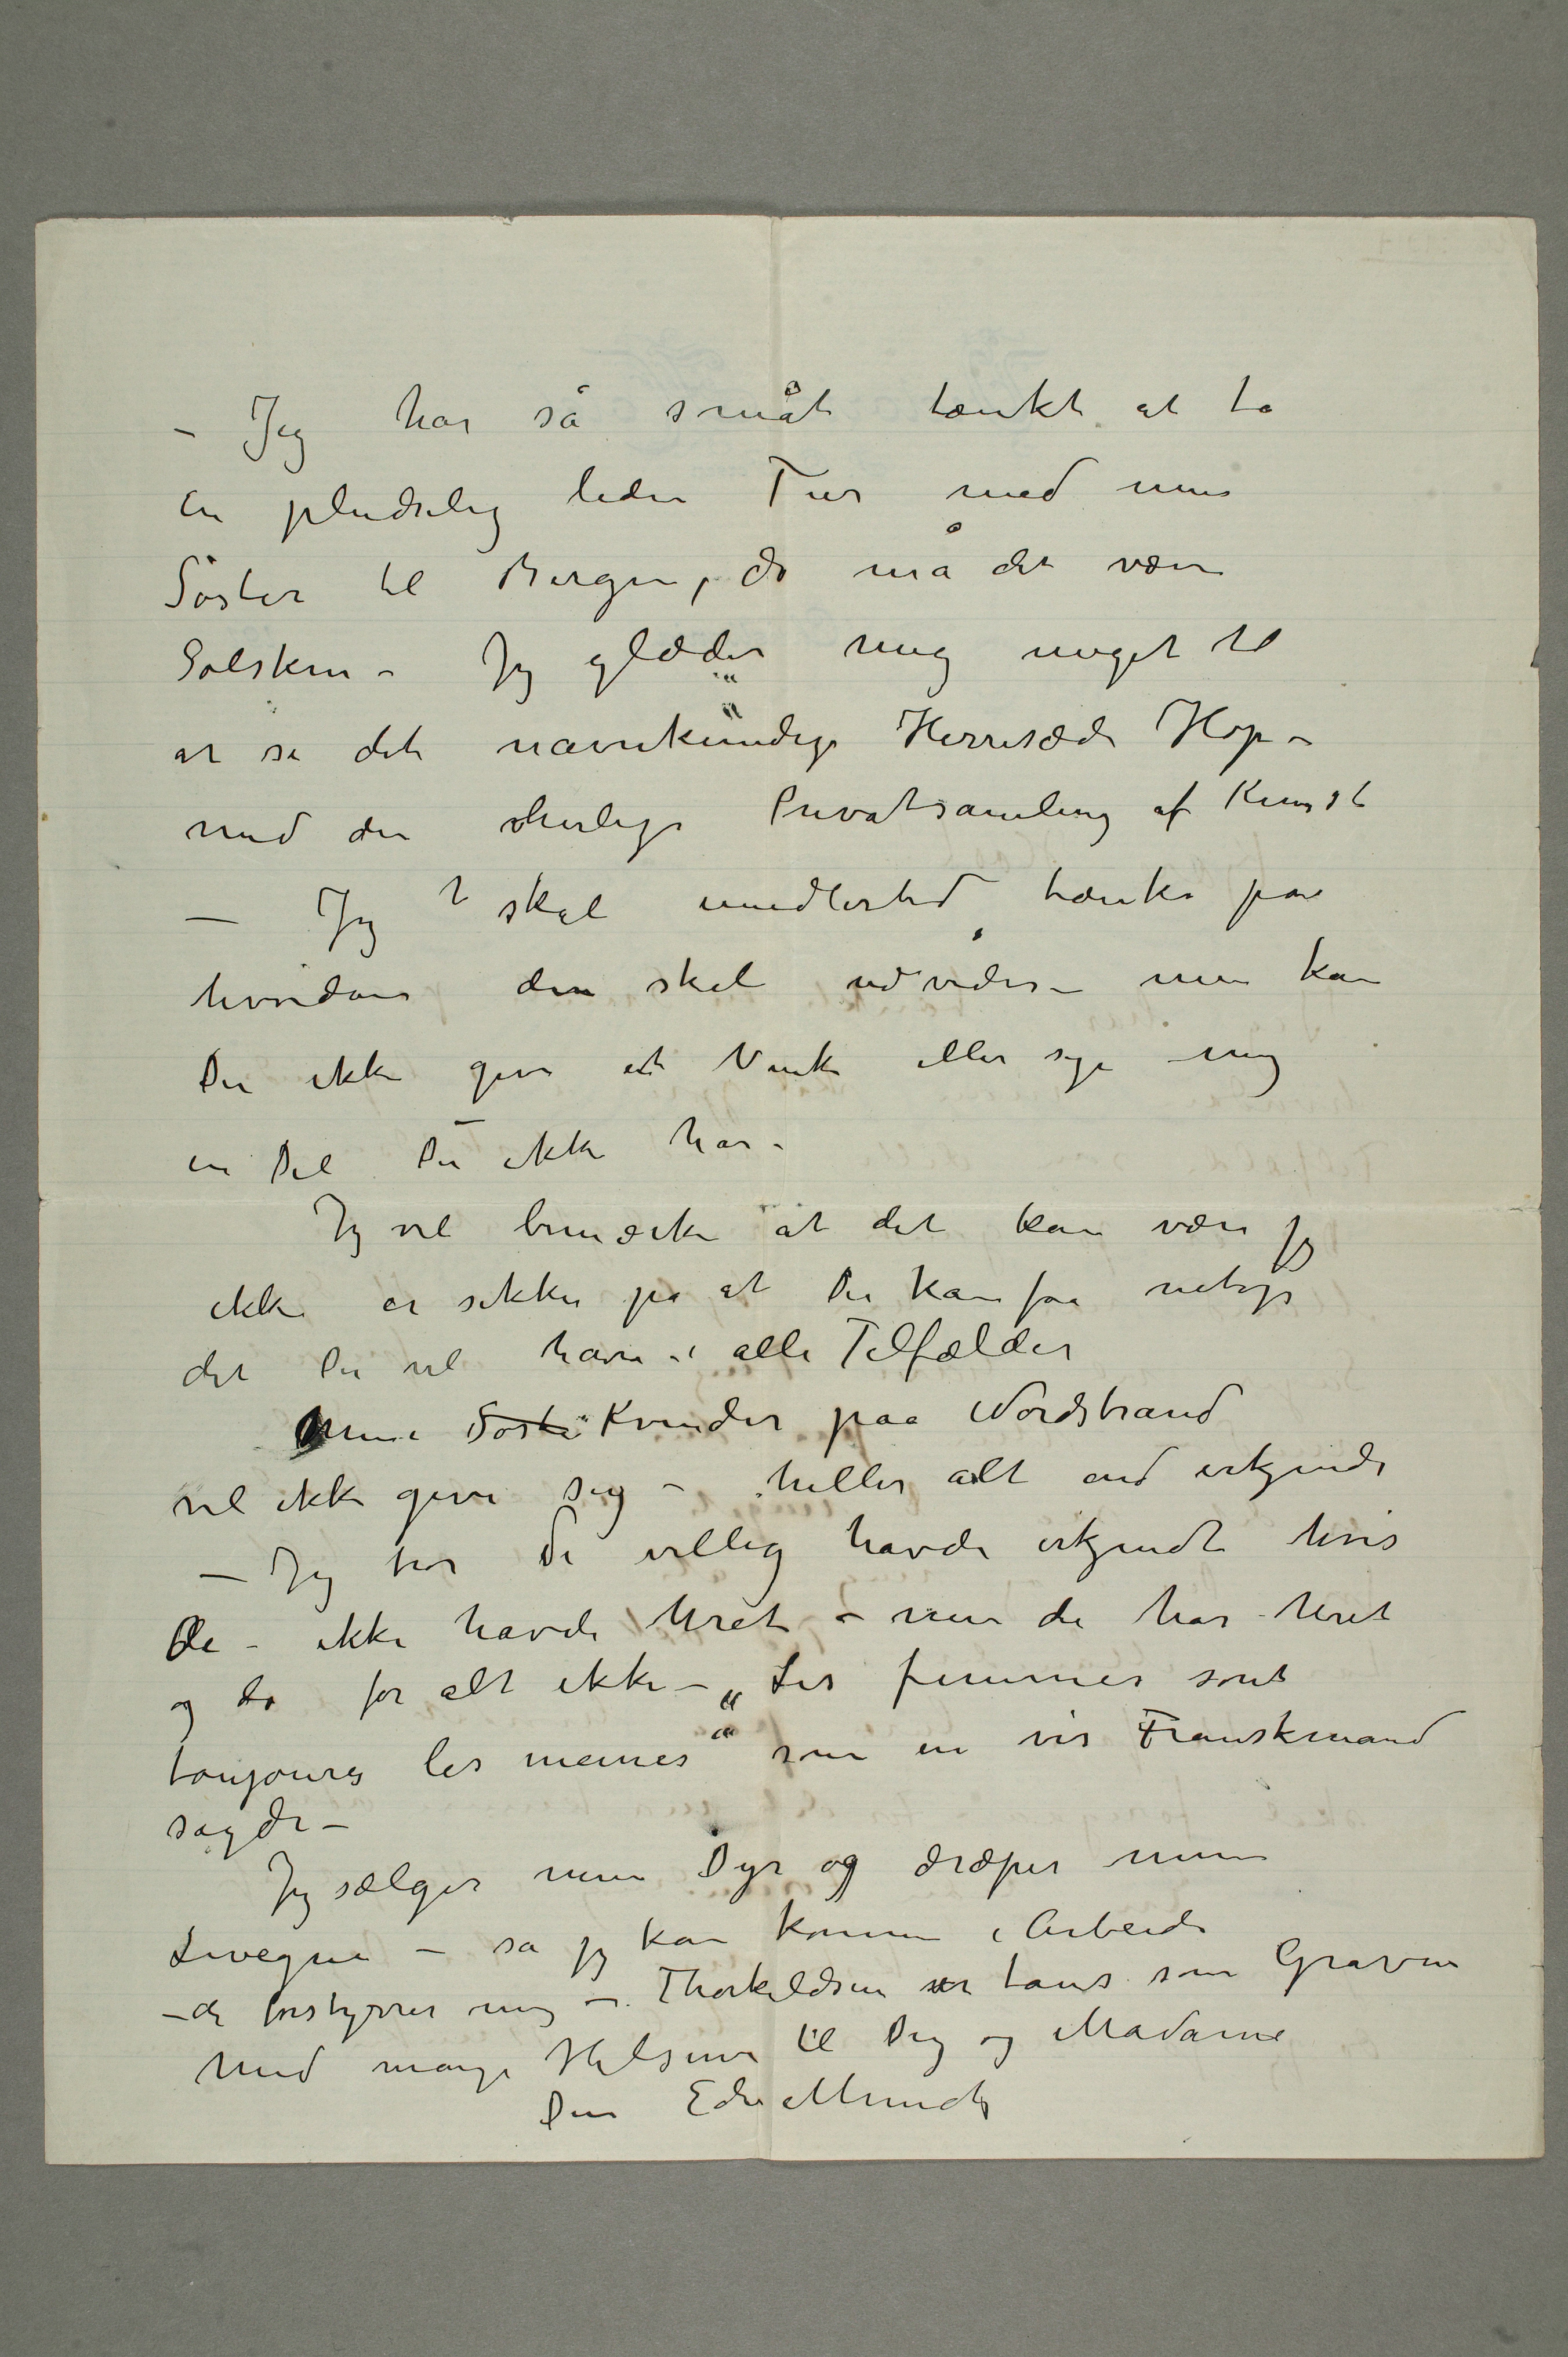 – Jeg har så småt tænkt at ta
en pludselig liden Tur med min
Søster til Bergen, da må det være
Solskin – Jeg glæder mig meget til
at se det navnkundige Herresæde Hop –
med den herlige Privatsamling af Kunst
– Jeg skal imidlertid tænke paa
hvordan den skal udvides – men kan
Du ikke give et Vink eller sige mig
en Del Du ikke har –
Jeg vil bemærke at det kan være jeg
ikke er sikker på at Du kan faa netop
det Du vil have i alle Tilfælder
Mine Søste Kvinder paa Nordstrand
vil ikke give sig – heller alt end erkjende
– Jeg tror de villig havde erkjendt hvis
De – ikke havde Uret – men de har Uret
og da for alt ikke – „Les femmes sont
toujours les memes“ som en vis Franskmand
sagde –
Jeg sælger mine Dyr og dræper mine
Livegne – så jeg kan komme i Arbeide
– de forstyrrer mig – Thorkildsen er taus som Graven
Med mange Hilsener til Dig og Madame
Din Edv Munch